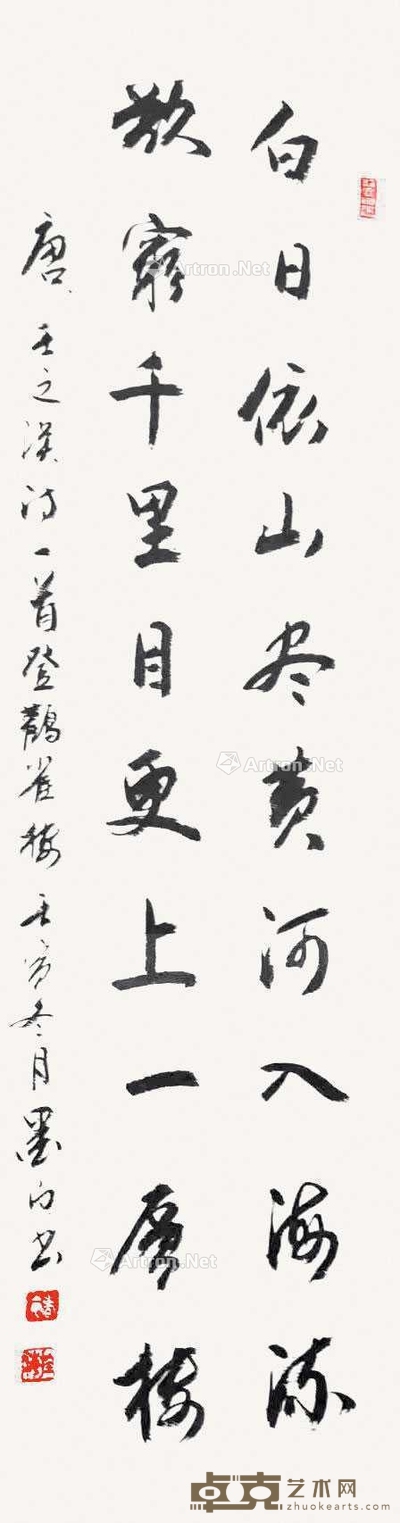 白日依山尽黄河入海流
欲穷千里目更上一层楼
唐王之涣诗一首登鹳雀楼壬寅冬月墨白书
Artron.Net
Artron.Net
Artron.Net
Artron.Net
卓克艺术网
zhuokearts.com